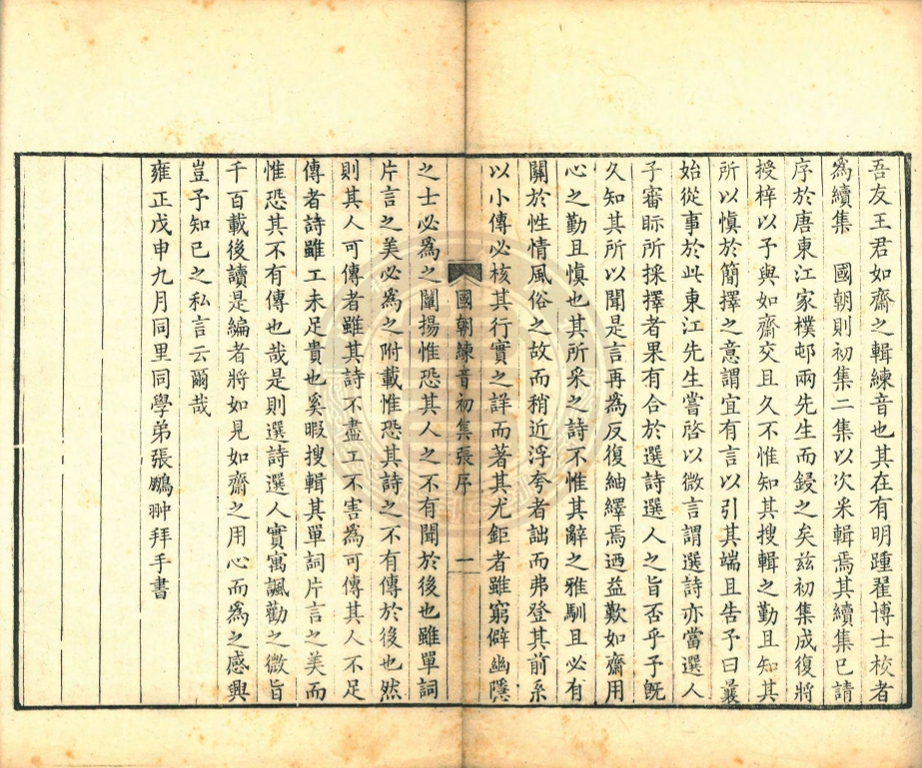 吾友王君如齋之輯練音也其在有明踵翟博士校者
為續集　國朝則初集二集以次采輯焉其續集已請
序於唐東江家樸邨兩先生而鋟之矣兹初集成復將
授梓以予與如齋交且久不惟知其搜輯之勤且知其
所以慎於簡擇之意謂宜有言以引其端且告予曰曩
始從事於此東江先生嘗啓以微言謂選詩亦當選人
子審眎所採擇者果有合於選詩選人之旨否乎予旣
久知其所以聞是言再為反復紬繹焉迺益歎如齋用
心之勤且慎也其所采之詩不惟其辭之雅馴且必有
關於性情風俗之故而稍近浮夸者詘而弗登其前系
以小傳必核其行實之詳而著其尤鉅者雖窮僻幽隱
國朝練音初集張序　一
之士必為之闡揚惟恐其人之不有聞於後也雖單詞
片言之美必為之附載惟恐其詩之不有傳於後也然
則其人可傳者雖其詩不盡工不害為可傳其人不足
傳者詩雖工未足貴也奚暇搜輯其單詞片言之美而
惟恐其不有傳也哉是則選詩選人實寓諷勸之微旨
千百載後讀是編者將如見如齋之用心而為之感興
豈予知已之私言云爾哉
雍正戊申九月同里同學弟張鵬翀拜手書